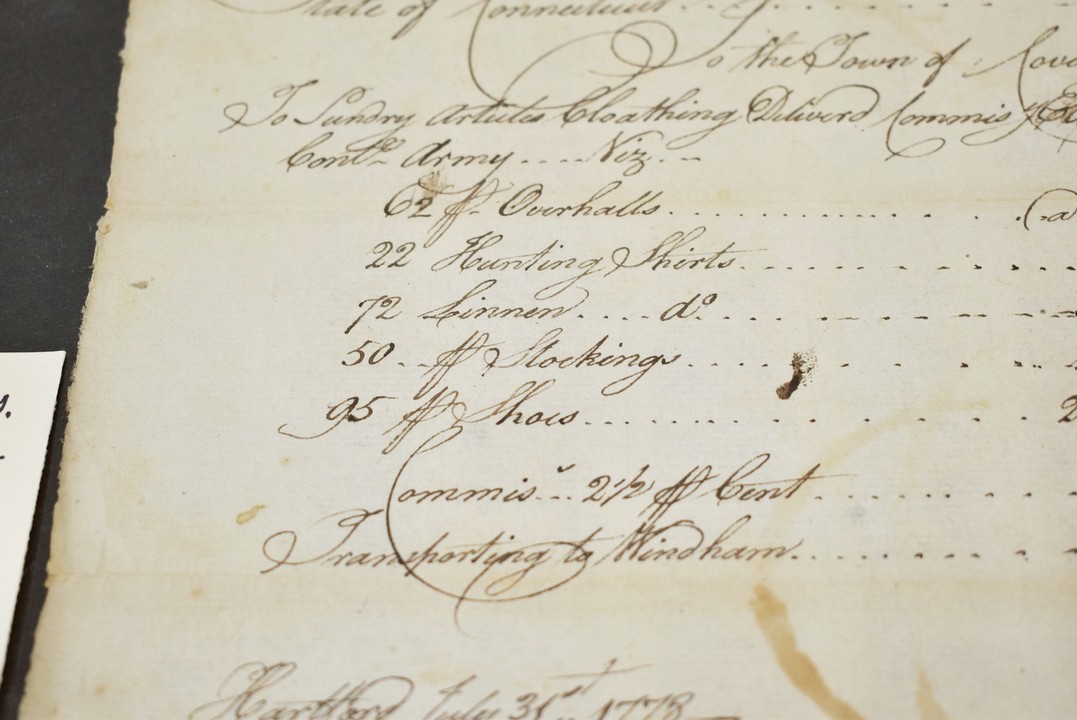 State of Connecticut
To the Town of
To Sundry Articles Cloathing Deliverd Commis
Contl. Army .... Viz ...
62 pr. Overhalls ............ (a
22 Hunting Shirts ............
72 Linnen .... do. ............
50 .. pr Stockings ............
95 pr Shoes ............ 2
Commis.. 2 1/2 pr Cent ............
Transporting to Windham ............
Hartford July 31st.. 1778